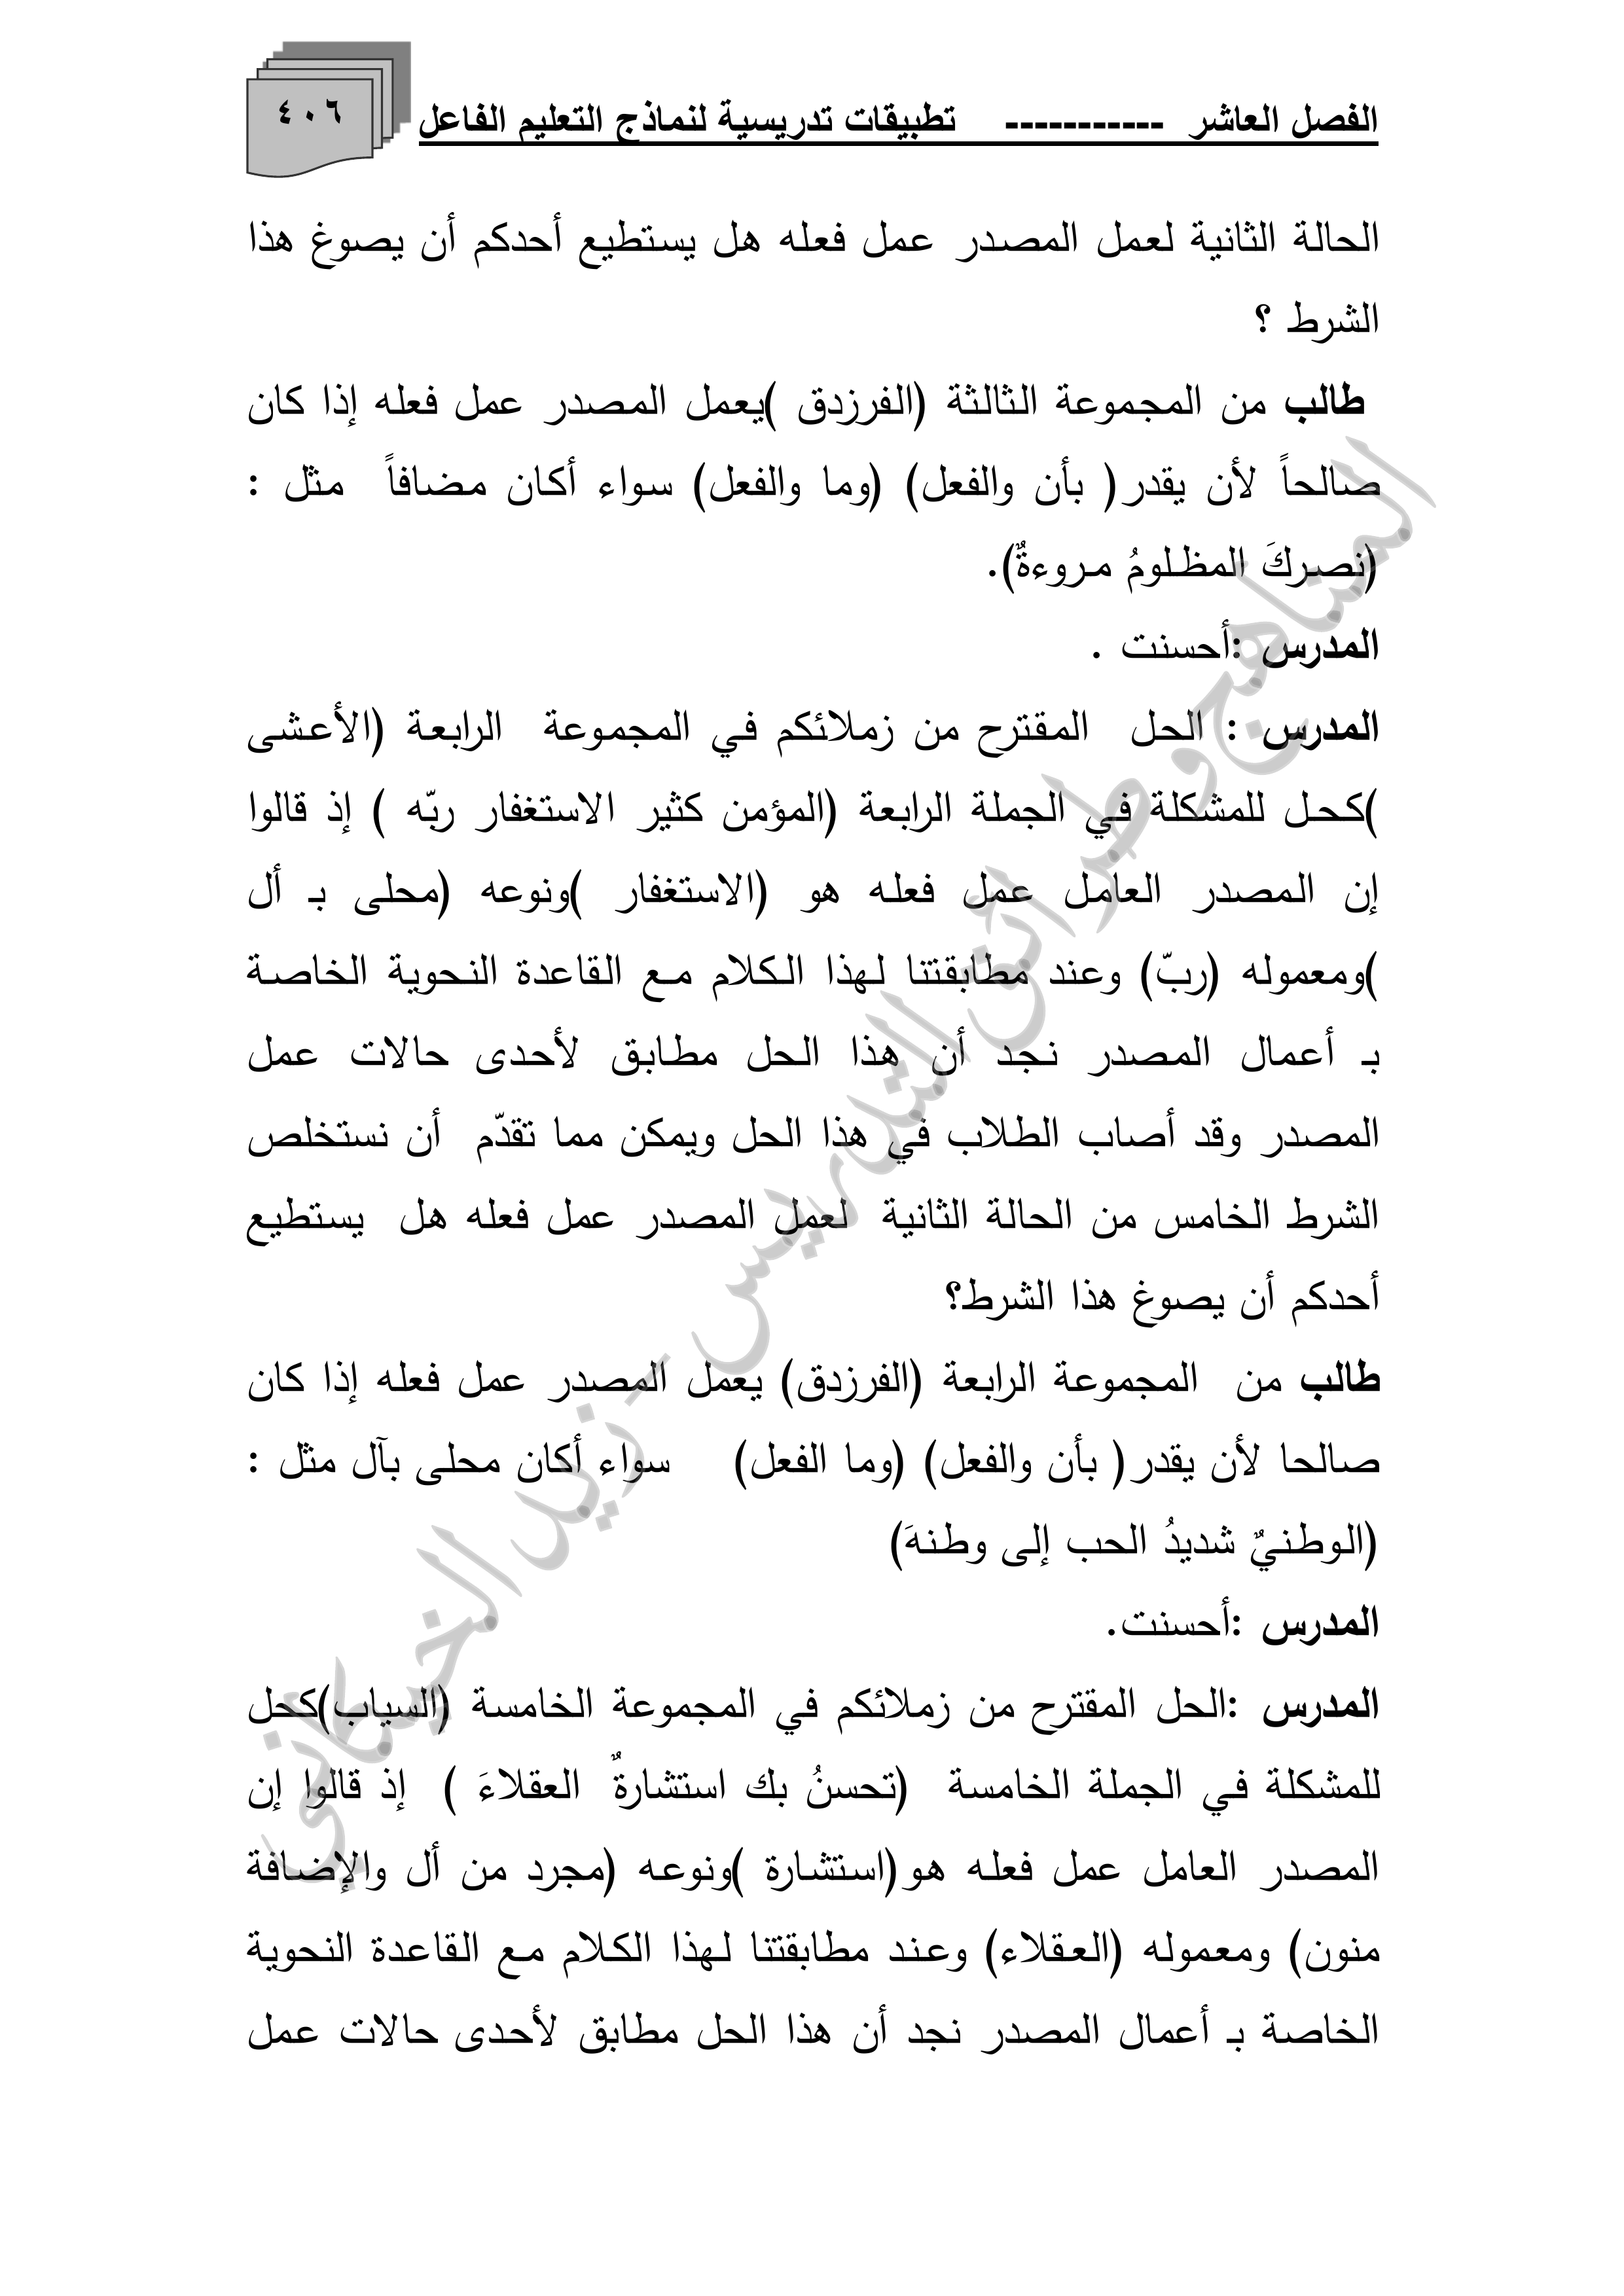 الفصل العاشر ----------- تطبيقات تدريسية لنماذج التعليم الفاعل
٤٠٦
الحالة الثانية لعمل المصدر عمل فعله هل يستطيع أحدكم أن يصوغ هذا
الشرط ؟
طالب من المجموعة الثالثة (الفرزدق )يعمل المصدر عمل فعله إذا كان
صالحاً لأن يقدر( بأن والفعل) (وما والفعل) سواء أكان مضافاً مثل :
(نصركَ المظلومُ مروءةٌ).
المدرس :أحسنت .
المدرس : الحل المقترح من زملائكم في المجموعة الرابعة (الأعشى
)كحل للمشكلة في الجملة الرابعة (المؤمن كثير الاستغفار ربّه ) إذ قالوا
إن المصدر العامل عمل فعله هو (الاستغفار )ونوعه (محلى بـ أل
)ومعموله (ربّ) وعند مطابقتنا لهذا الكلام مع القاعدة النحوية الخاصة
بـ أعمال المصدر نجد أن هذا الحل مطابق لأحدى حالات عمل
المصدر وقد أصاب الطلاب في هذا الحل ويمكن مما تقدّم أن نستخلص
الشرط الخامس من الحالة الثانية لعمل المصدر عمل فعله هل يستطيع
أحدكم أن يصوغ هذا الشرط؟
طالب من المجموعة الرابعة (الفرزدق) يعمل المصدر عمل فعله إذا كان
صالحا لأن يقدر( بأن والفعل) (وما الفعل) سواء أكان محلى بآل مثل :
(الوطنيٌ شديدُ الحب إلى وطنهَ)
المدرس :أحسنت.
المدرس :الحل المقترح من زملائكم في المجموعة الخامسة (السياب)كحل
للمشكلة في الجملة الخامسة (تحسنُ بك استشارةٌ العقلاءَ ) إذ قالوا إن
المصدر العامل عمل فعله هو(استشارة )ونوعه (مجرد من أل والإضافة
منون) ومعموله (العقلاء) وعند مطابقتنا لهذا الكلام مع القاعدة النحوية
الخاصة بـ أعمال المصدر نجد أن هذا الحل مطابق لأحدى حالات عمل
المناهج وطرائق التدريس - زيد الخيكاني